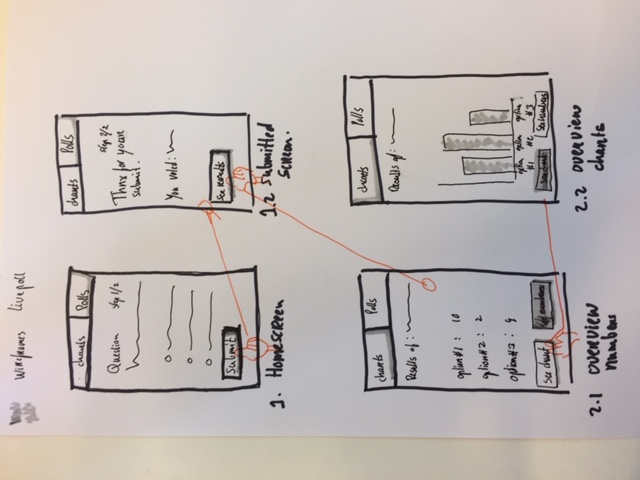 Wireframes Livepoll
charts Polls
Question step 1/2
Submit
1. Homescreen
charts Polls
step 2/2
Thnx for youre
submit.
You voted:
See results
1.2 Submitted
screen.
charts Polls
Results of:
option#1 : 10
option#2 : 2
option#3 :
See chart numbers
2.1 overview
numbers
charts Polls
Results of:
option option option
#1 #2 #3
See chart See numbers
2.2 overview
charts